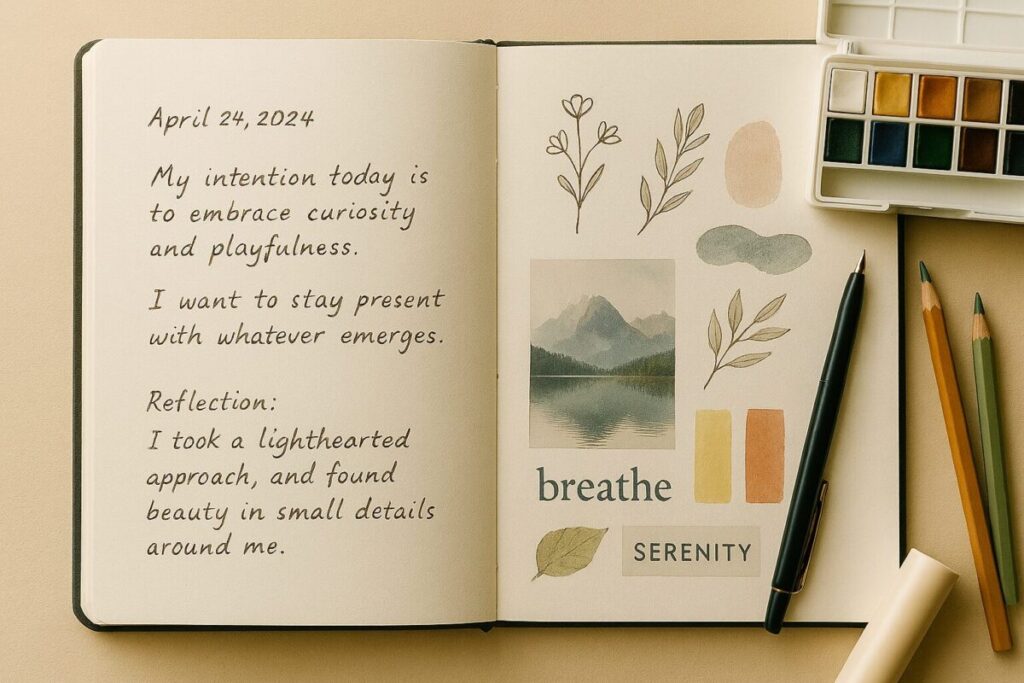 April 24, 2024
My intention today is
to embrace curiosity
and playfulness.
I want to stay present
with whatever emerges.
Reflection:
I took a lighthearted
approach, and found
beauty in small details
around me.
breathe
SERENITY